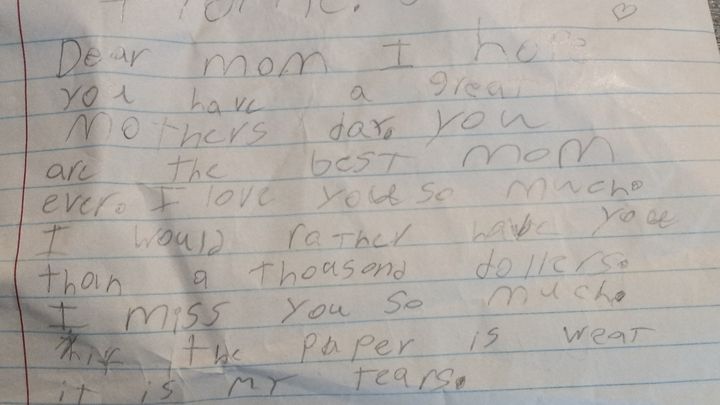 Dear mom I hope
you have a great
Mothers day. you
are the best mom
ever. I love you so much.
I would rather have you
than a thousand dollers.
I miss you so much.
the paper is weat
it is my tears.